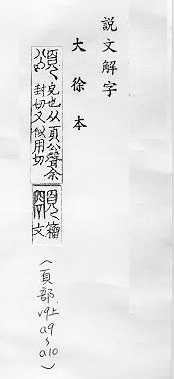 說文解字
大徐本
頌
皃也从頁公聲余
封切又似用切
籀
文
(頁部.v9上
a9~
a10)